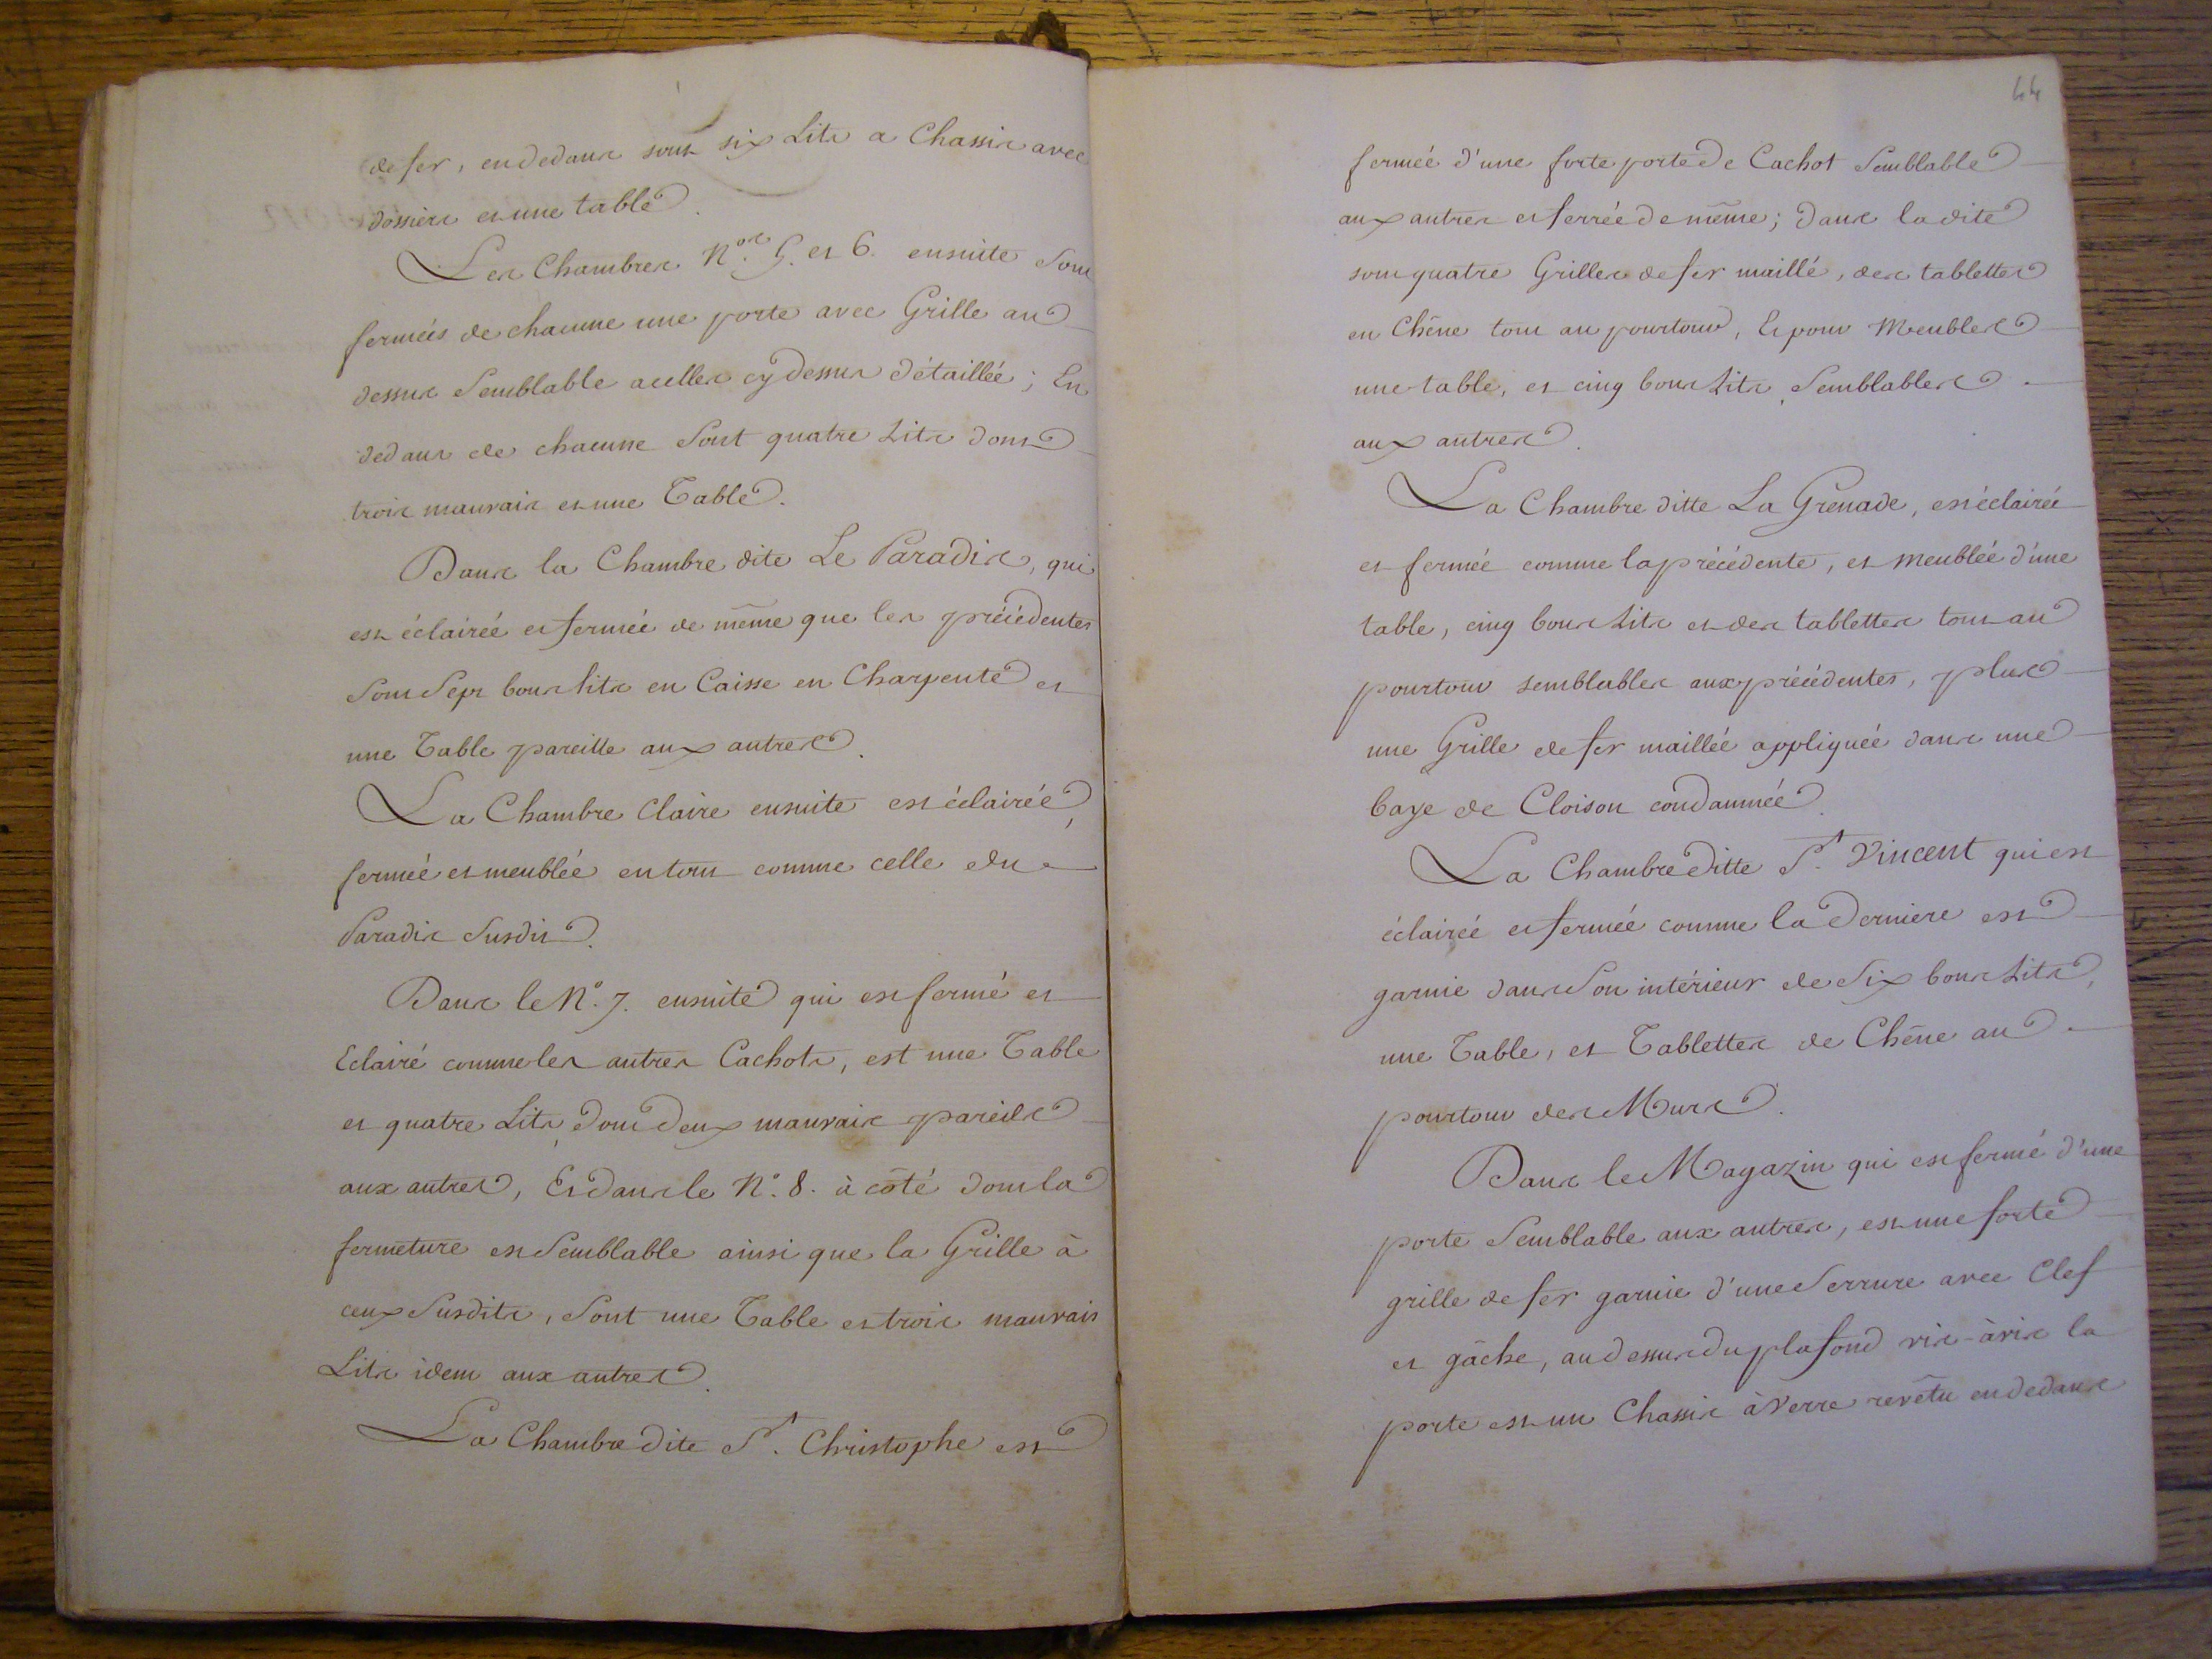 de fer, en dedans sont six Lits a Chassis avec
dossiers et une table.
Les Chambres Nos. 5. et 6. ensuite sont
fermées de chacune une porte avec Grille au
dessus Semblable a celles cy dessus détaillée; En
dedans de chacune Sont quatre Lits dont
trois mauvais et une Table.
Dans la Chambre dite Le Paradis, qui
est éclairée et fermée de même que les précédentes
sont Sept bons lits en Caisse en Charpente et
une Table pareille aux autres.
La Chambre Claire ensuite est éclairée,
fermée et meublée en tout comme celle du
Paradis Susdit.
Dans le No. 7. ensuite qui est fermé et
Eclairé comme les autres Cachots, est une Table
et quatre Lits, dont deux mauvais pareils
aux autres, Et dans le No. 8. à côté dont la
fermeture est Semblable ainsi que la Grille à
ceux Susdits, Sont une Table et trois mauvais
Lits idem aux autres.
La Chambre dite St. Christophe est
44
fermée d'une forte porte de Cachot Semblable
aux autres et ferrée de même; dans la dite
sont quatre Grilles de fer maillé, des tablettes
en Chêne tout au pourtour, Et pour Meubles
une table, et cinq bons Lits, Semblables
aux autres.
La Chambre ditte La Grenade, est éclairée
et fermée comme la précédente, et meublée d'une
table, cinq bons Lits et des tablettes tout au
pourtour semblables aux précédentes, plus
une Grille de fer maillée appliquée dans une
baye de Cloison condamnée.
La Chambre ditte St. Vincent qui est
éclairée et fermée comme la derniere est
garnie dans Son intérieur de Six bons Lits,
une Table, et Tablettes de Chêne au
pourtour des Murs.
Dans le Magazin qui est fermé d'une
porte Semblable aux autres, est une forte
grille de fer garnie d'une Serrure avec Clef
et gâche, au dessus du plafond vis-à vis la
porte est un Chassis à Verre revêtu en dedans